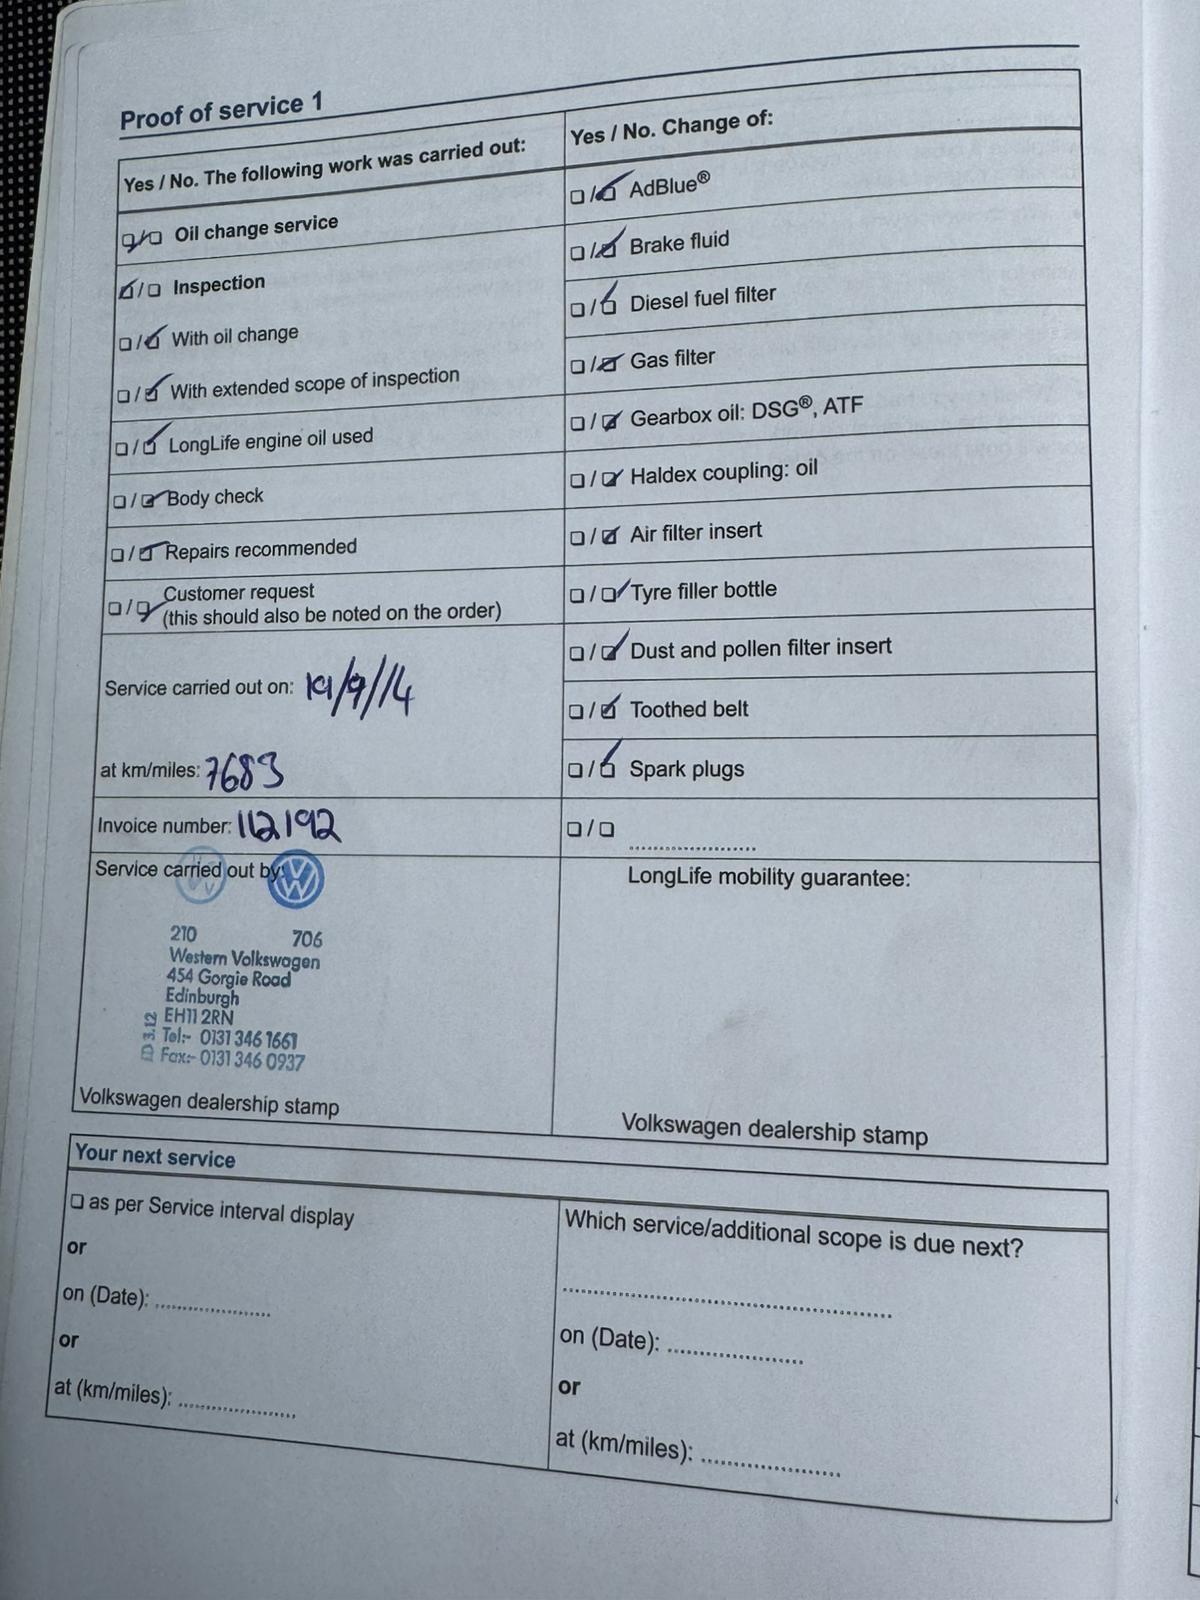 Proof of service 1
Yes / No. The following work was carried out:
Oil change service
Inspection
With oil change
With extended scope of inspection
LongLife engine oil used
Body check
Repairs recommended
Customer request
(this should also be noted on the order)
Service carried out on: 19/9/14
at km/miles: 7683
Invoice number: 112192
Service carried out by:
210 706
Western Volkswagen
454 Gorgie Road
Edinburgh
EH11 2RN
Tel:- 0131 346 1661
Fax:- 0131 346 0937
Volkswagen dealership stamp
Yes / No. Change of:
AdBlue®
Brake fluid
Diesel fuel filter
Gas filter
Gearbox oil: DSG®, ATF
Haldex coupling: oil
Air filter insert
Tyre filler bottle
Dust and pollen filter insert
Toothed belt
Spark plugs
LongLife mobility guarantee:
Volkswagen dealership stamp
Your next service
as per Service interval display
or
on (Date):
or
at (km/miles):
Which service/additional scope is due next?
on (Date):
or
at (km/miles):